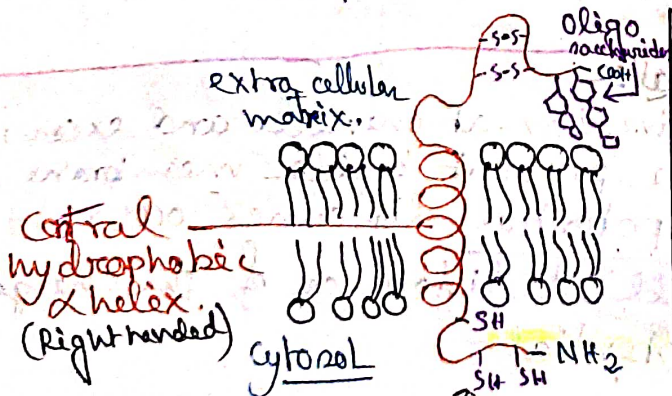 oligo
saccharides
-S-S-
-S-S-
COOH
extra cellular
matrix.
Central
hydrophobic
α helix.
(Right handed)
cytosol
SH
NH2
SH SH